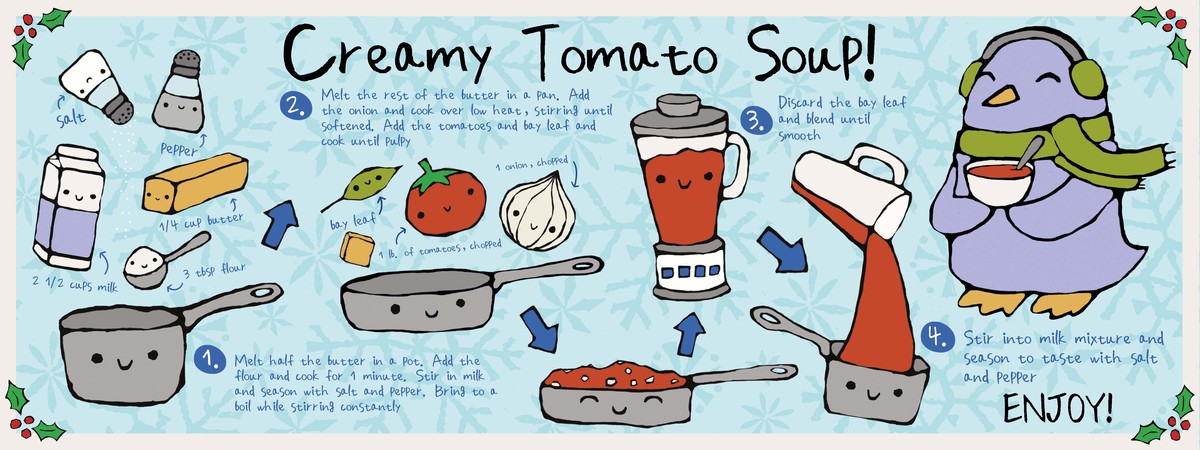 Creamy Tomato Soup!
salt
pepper
1/4 cup butter
2 1/2 cups milk
3 tbsp flour
1.
Melt half the butter in a pot. Add the
flour and cook for 1 minute. Stir in milk
and season with salt and pepper. Bring to a
boil while stirring constantly
2.
Melt the rest of the butter in a pan. Add
the onion and cook over low heat, stirring until
softened. Add the tomatoes and bay leaf and
cook until pulpy
1 onion, chopped
bay leaf
1 lb. of tomatoes, chopped
3.
Discard the bay leaf
and blend until
smooth
4.
Stir into milk mixture and
season to taste with salt
and pepper
ENJOY!